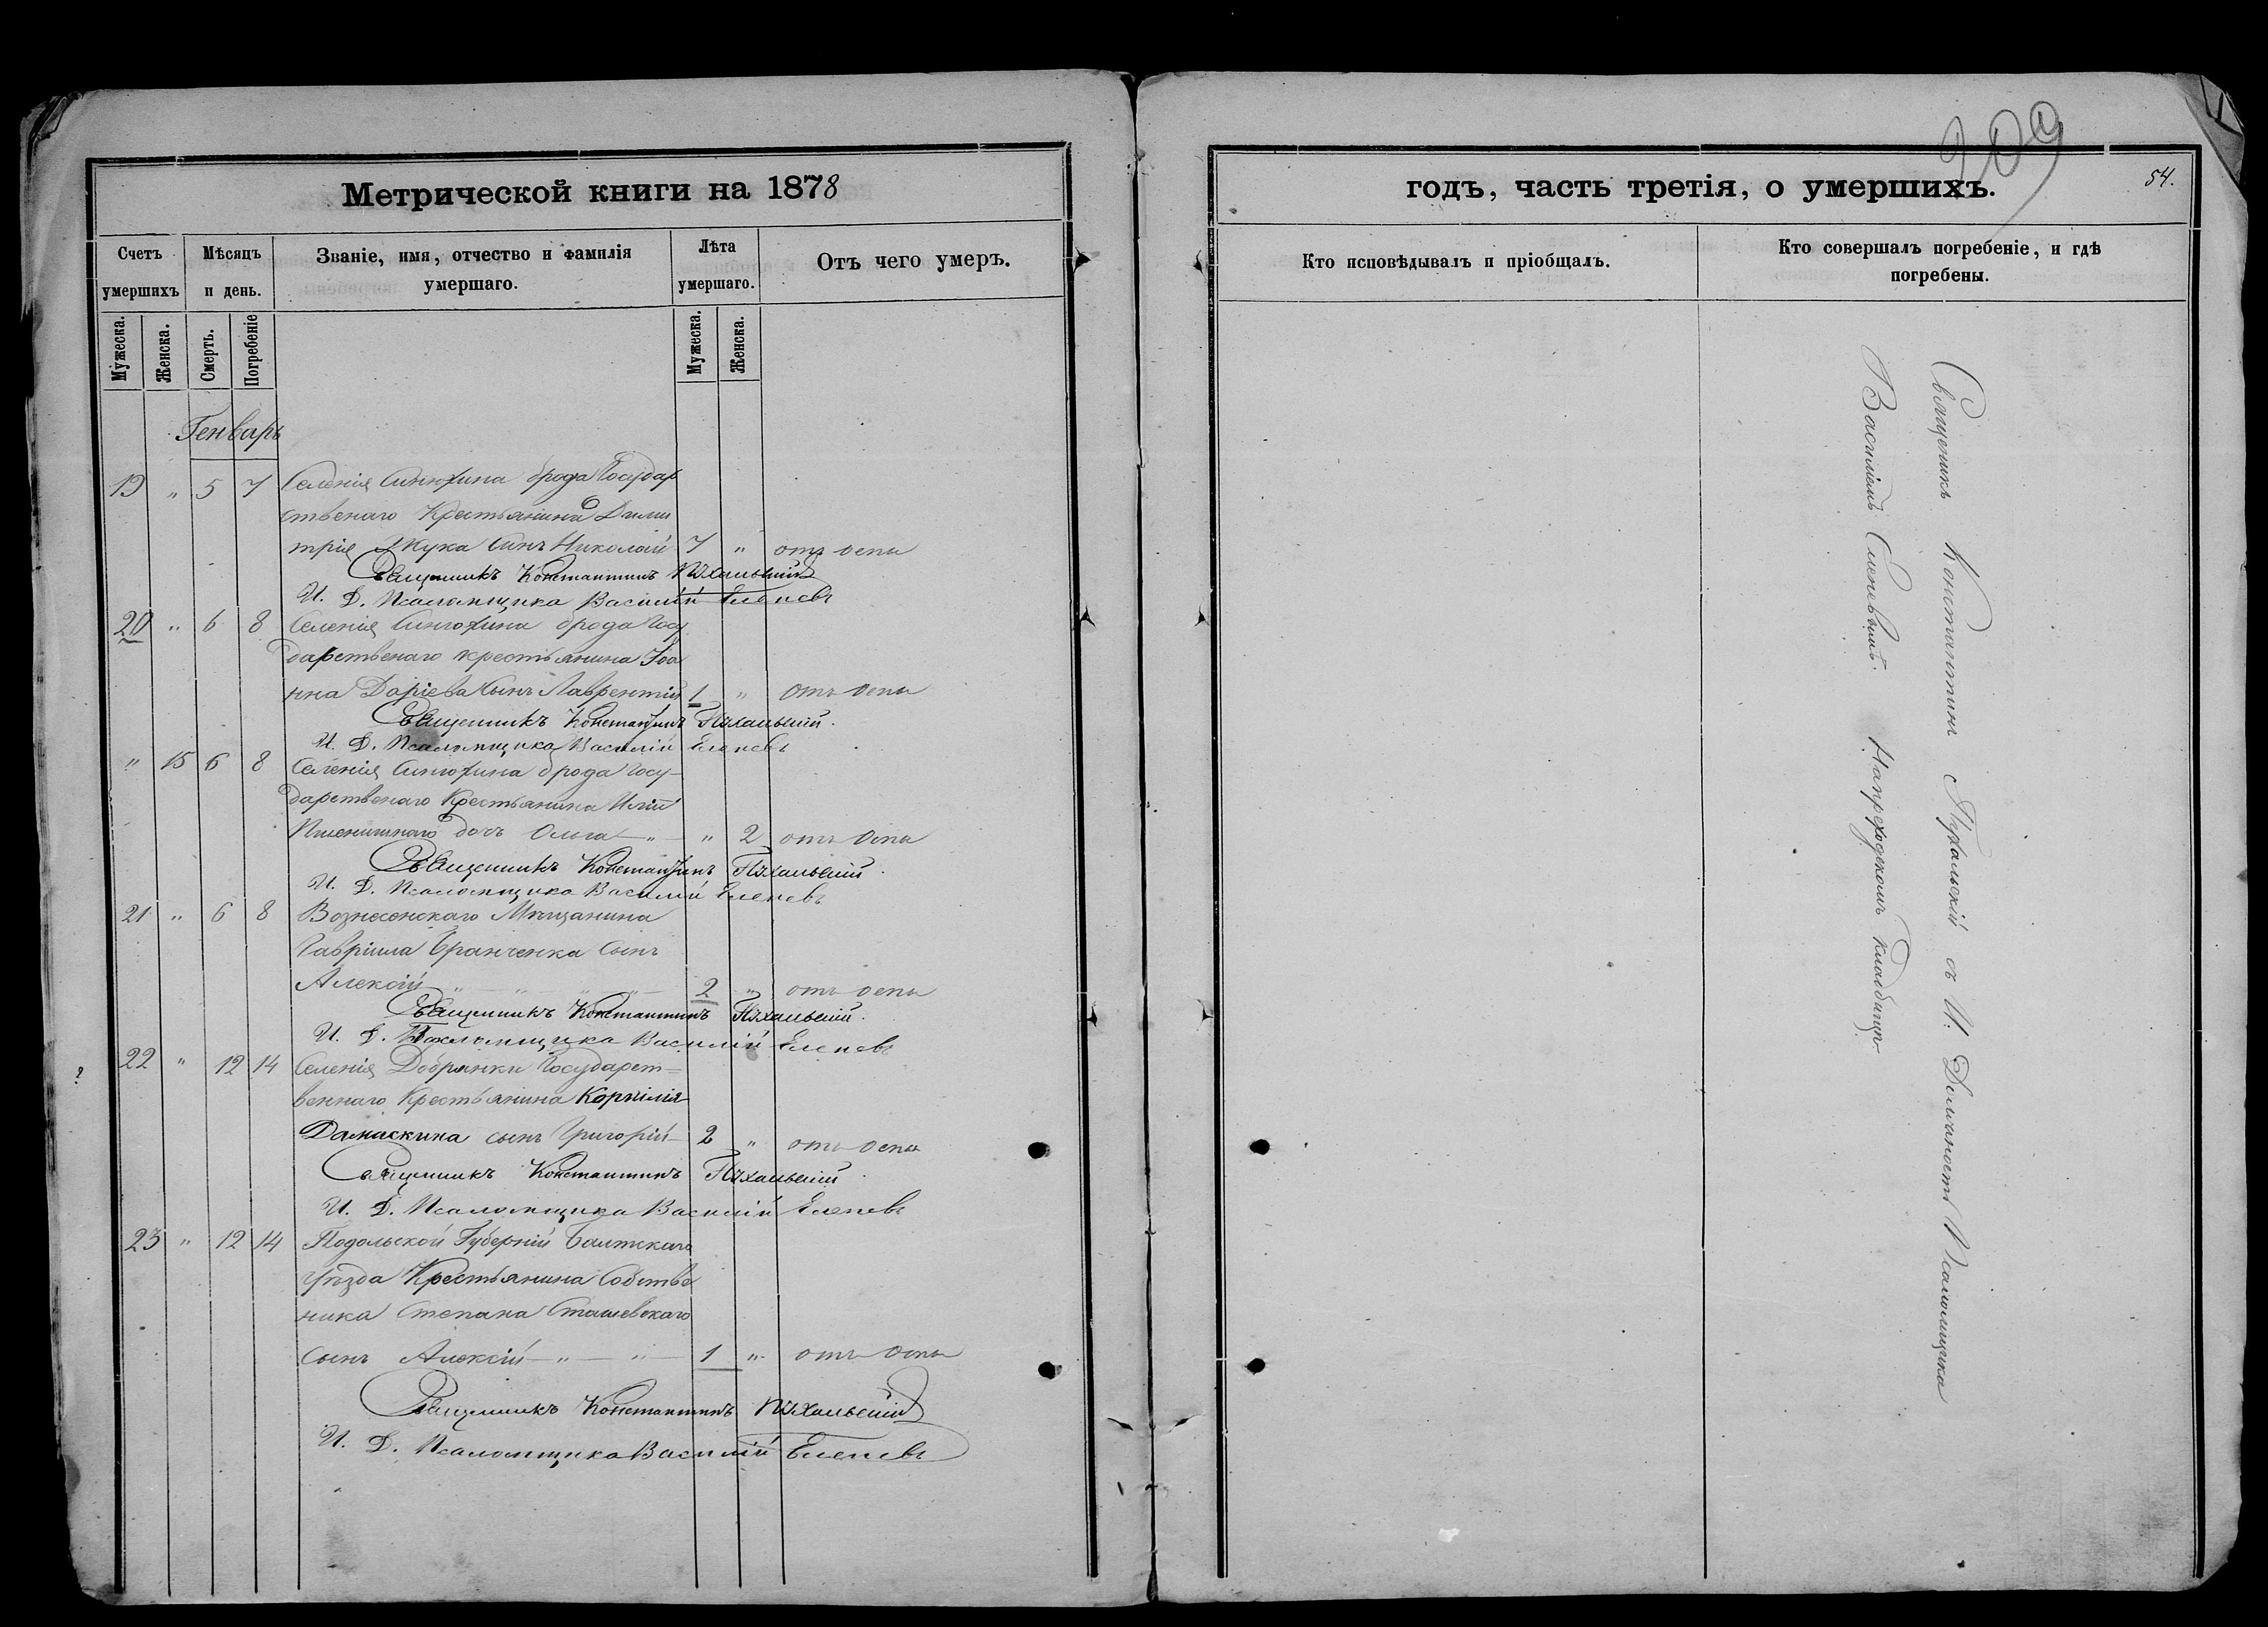 Метрической книги на 1878
Счетъ умершихъ
Мѣсяцъ и день.
Званіе, имя, отчество и фамилія умершаго.
Лѣта умершаго.
Отъ чего умеръ.
Мужеска.
Женска.
Смерть.
Погребеніе
Мужеска.
Женска.
Генварь
19 " 5 7 Селенія Синюхина брода Государ
ственаго Крестьянина Дими
трія Жука Синъ Николай 7 " отъ оспы
Священникъ Константинъ Пухальскій
И. Д. Псаломщика Василій Еленевъ
20 " 6 8 Селенія Синюхина брода Госу
дарственаго крестьянина Іоа
нна Даріева Сынъ Лаврентій 1 " отъ оспы
Священникъ Константинъ Пухальскій.
И. Д. Псаломщика Василій Еленевъ
" 15 6 8 Селенія Синюхина брода Госу-
дарственаго Крестьянина Иліи
Пшенишнаго дочь Ольга " " 2 отъ Оспы
Священникъ Константинъ Пухальскій.
И. Д. Псаломщика Василій Еленевъ
21 " 6 8 Вознесенскаго Мѣщанина
Гавріила Бранченка Сынъ
Алексій " " " " 2 " отъ оспы
Священникъ Константинъ Пухальскій.
И. Д. Псаломщика Василій Еленевъ
22 " 12 14 Селенія Добрянки Государст=
веннаго Крестьянина Корнилія
Дамаскина сынъ Григорій 2 " отъ оспы
Священникъ Константинъ Пухальскій.
И. Д. Псаломщика Василій Еленевъ
23 " 12 14 Подольской Губерніи Балтскаго
уѣзда Крестьянина Собстве
ника Степана Сташевскаго
Сынъ Алексій " " 1 " отъ Оспы
Священникъ Константинъ Пухальскій
И. Д. Псаломщика Василій Еленевъ
?
209
54.
годъ, часть третія, о умершихъ.
Кто исповѣдывалъ и пріобщалъ.
Кто совершалъ погребеніе, и гдѣ погребены.
Священникъ Константинъ Пухальскій съ И. Должность Псаломщика
Василіемъ Еленевымъ. На приходскомъ кладбищѣ